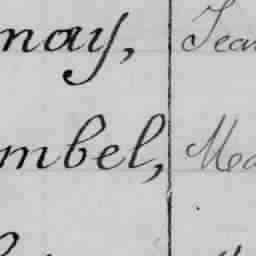 nay, Jean
mbel, Ma